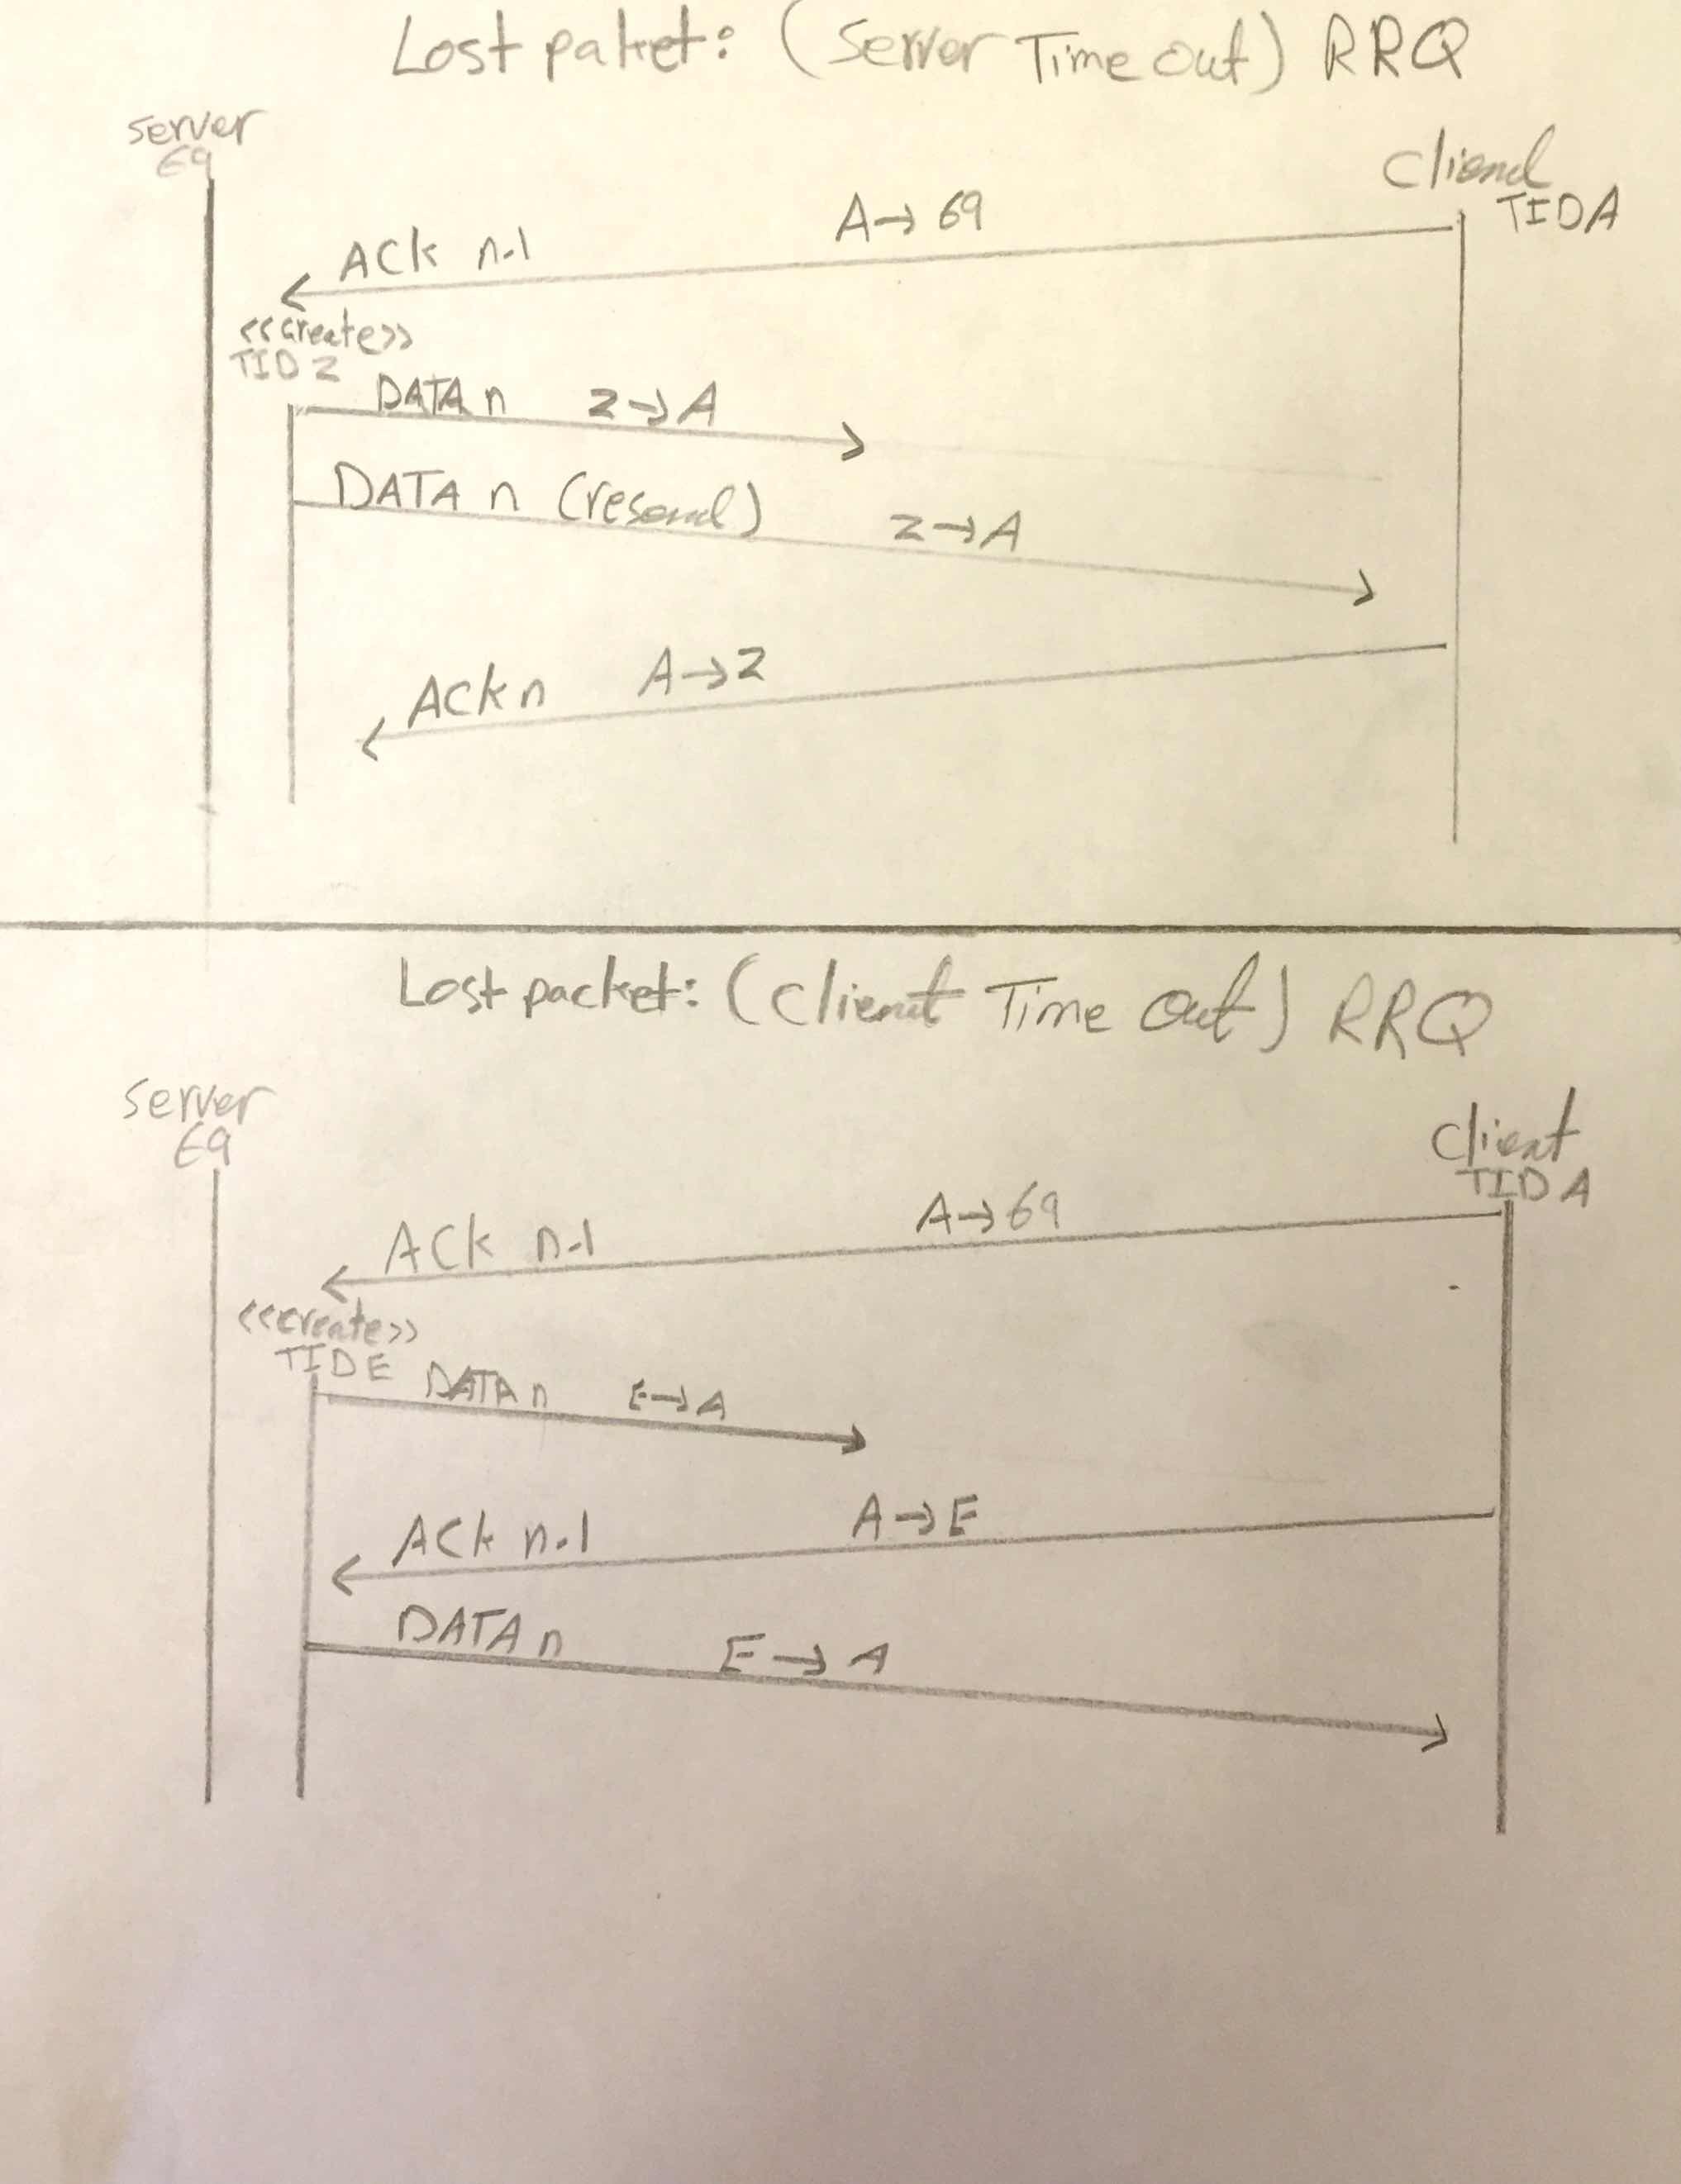 Lost paket: (Server Time out) RRQ
server
69
Cliend
TID A
A→69
ACK n-1
<<create>>
TID Z
DATA n Z→A
DATA n (resend) Z→A
ACK n A→Z
Lost packet: (Client Time Out) RRQ
server
69
Client
TID A
A→69
ACK n-1
<<create>>
TID E
DATA n E→A
ACK n-1 A→E
DATA n E→A